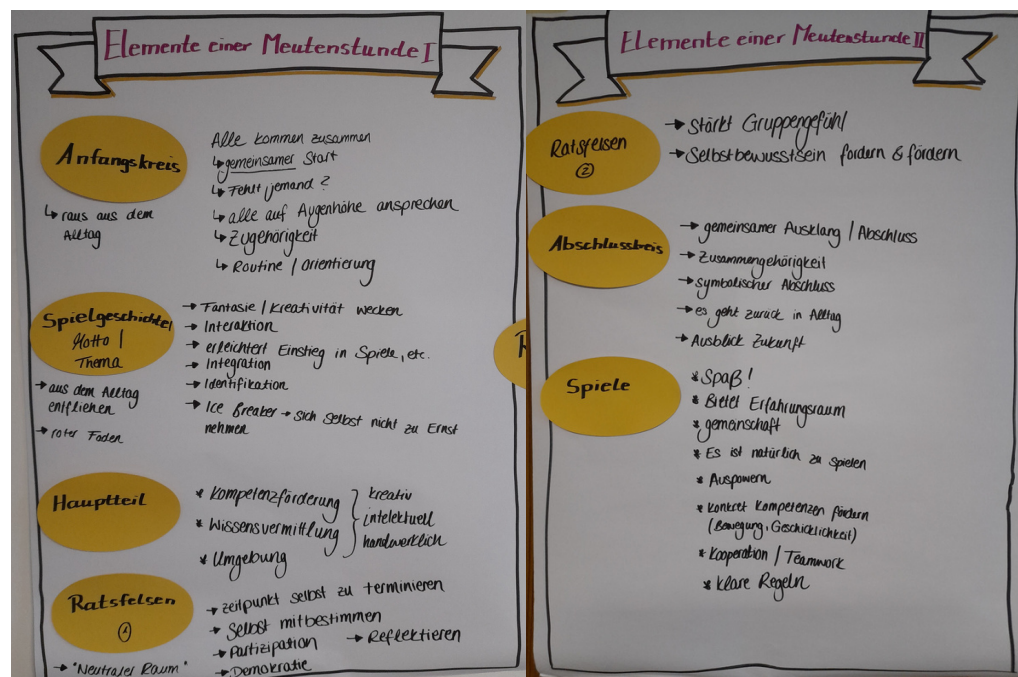 Elemente einer Meutenstunde I
Anfangskreis
↳ raus aus dem
Alltag
Alle kommen zusammen
↳ gemeinsamer Start
↳ Fehlt jemand?
↳ alle auf Augenhöhe ansprechen
↳ Zugehörigkeit
↳ Routine / orientierung
Spielgeschichte/
Motto /
Thema
→ aus dem Alltag
entfliehen
→ roter Faden
→ Fantasie / Kreativität wecken
→ Interaktion
→ erleichtert Einstieg in Spiele, etc.
→ Integration
→ Identifikation
→ Ice Breaker → sich selbst nicht zu Ernst
nehmen
Hauptteil
* Kompetenzförderung
* Wissensvermittlung
* Umgebung
kreativ
intelektuell
handwerklich
Ratsfelsen
①
→ "Neutraler Raum"
→ zeitpunkt selbst zu terminieren
→ Selbst mitbestimmen
→ Partizipation → Reflektieren
→ Demokratie
Elemente einer Meutenstunde II
Ratsfelsen
②
→ Stärkt Gruppengefühl
→ Selbstbewusstsein fordern & fördern
Abschlusskreis
→ gemeinsamer Ausklang / Abschluss
→ Zusammengehörigkeit
→ symbolischer Abschluss
→ es geht zurück in Alltag
→ Ausblick Zukunft
Spiele
* Spaß!
* Bietet Erfahrungsraum
* gemeinschaft
* Es ist natürlich zu spielen
* Auspowern
* Konkret Kompetenzen fördern
(Bewegung, Geschicklichkeit)
* Kooperation / Teamwork
* klare Regeln